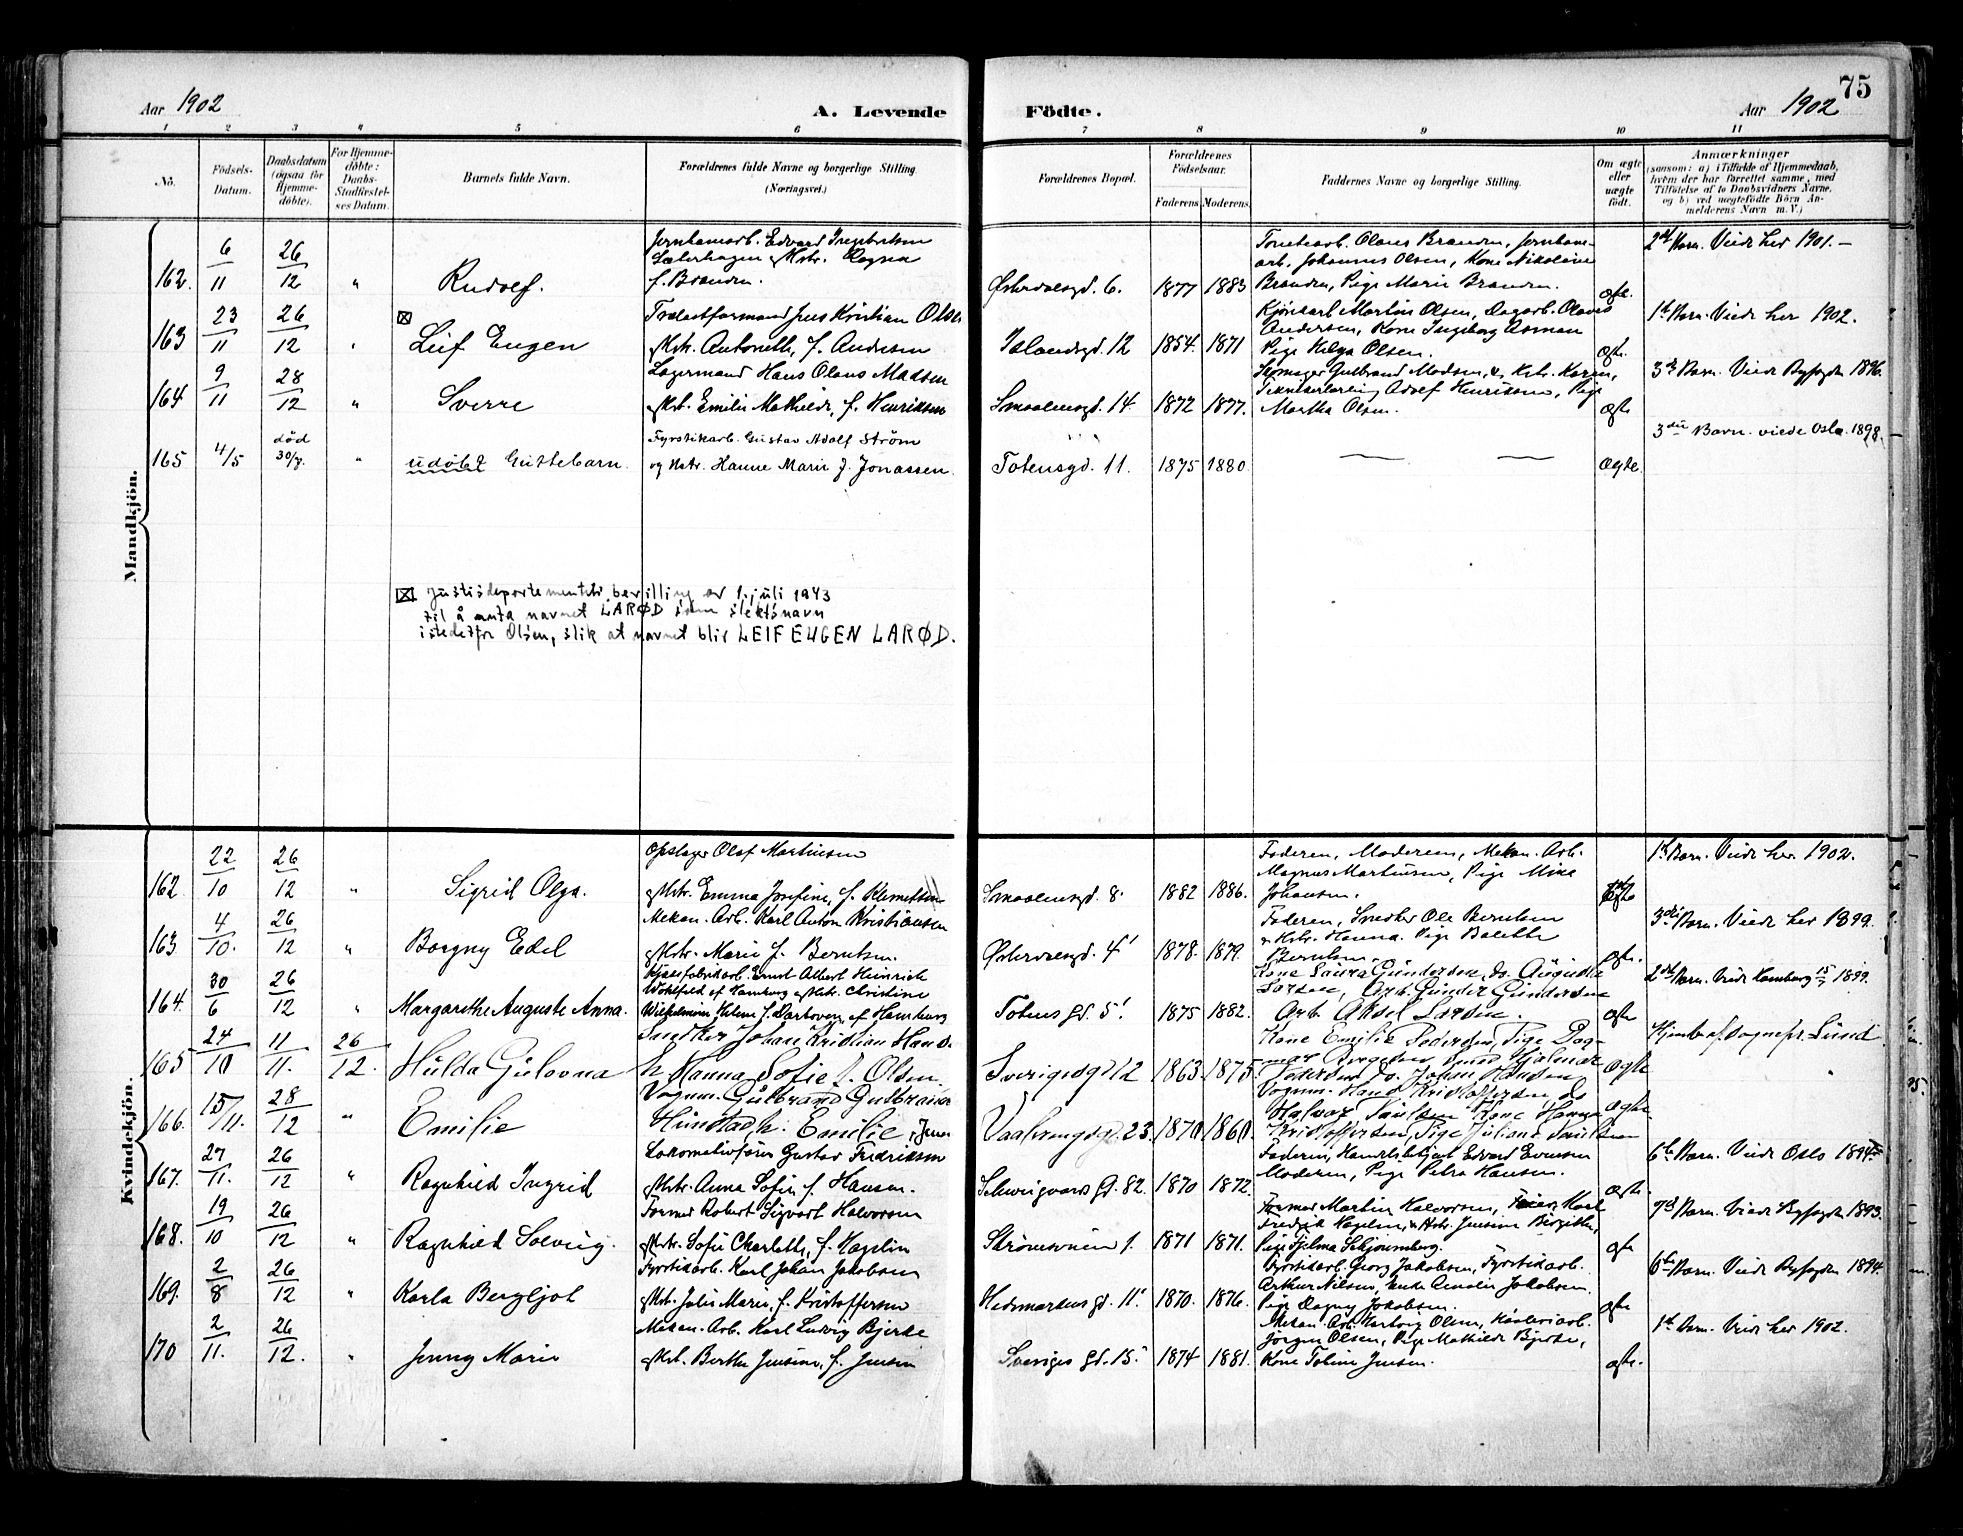 75
Aar 1902
A. Levende
Födte.
Aar 1902
1 2 3 4 5 6 7 8 9 10 11
No.
Födsels-
Datum.
Daabsdatum
(ogsaa for
Hjemme-
döbte).
For Hjemme-
döbte:
Daabs-
Stadfæstel-
ses Datum.
Barnets fulde Navn.
Forældrenes fulde Navne og borgerlige Stilling
(Næringsvei.)
Forældrenes Bopæl.
Forældrenes
Födselsaar.
Faderens Moderens
Faddernes Navne og borgerlige Stilling.
Om ægte
eller
uægte
födt.
Anmærkninger
(saasom: a) i Tilfælde af Hjemmedaab,
hvem der har forrettet samme, med
Tilföielse af to Daabsvidners Navne,
og b) ved uægtefödte Börn An-
melderens Navn m. V.)
Mandkjön.
162. 6/11 26/12 " Rudolf.
Jernbanearb. Edvard Ingebretsen
Sæterhagen & Hstr. Ragna
f. Branden.
Østerdalsgd. 6. 1877 1883
Tomtearb. Olaus Branden, Jernbane-
arb. Johannes Olsen, Kone Nikoline
Branden, Pige Marie Branden.
ægte.
2det Barn. Viede her 1901.-
163 23/11 26/12 " Leif Eugen
Trælastformand Jens Kristian Olsen
& Hstr. Antonette, f. Andersen
Islandsgd. 12 1854. 1871
Kjörekarl Martin Olsen, Dagarb. Olaves
Andersen, Kone Ingeborg Asman
Pige Helga Olsen.
ægte.
1ste Barn. Viede her 1902.
164 9/11 28/12 " Sverre
Lagermand Hans Olaus Madsen
& Hstr. Emilie Mathilde, f. Henriksen
Smaalensgd. 14 1872 1877.
Skomager Gulbrand Madsen, & Hstr. Karen,
Adolf Henriksen, Pige
Martha Olsen.
ægte
3die Barn. Viede Byfogden 1896.
165 4/5 død 30/7. " udøbt Guttebarn.
Fyrstikarb. Gustav Adolf Ström
og Hstr. Hanne Marie f. Jonassen.
Totensgd. 11. 1875 1880 — — ægte.
3die Barn. viede Oslo 1898.
Justisdepartementets bevilling av 1. juli 1943
til å anta navnet LARØD som slektsnavn
istedetfor Olsen, slik at navnet blir LEIF EUGEN LARØD.
Kvindekjön.
162. 22/10 26/12 " Sigrid Olga.
Opslager Olaf Martinsen
& Hstr. Emma Josefine, f. Klemetsen
Smaalensgd. 8. 1882 1886.
Faderen, Moderen, Mekan. Arb.
Magnus Martinsen, Pige Mina
Johansen.
ægte
1ste Barn. Viede her 1902.
163 4/10. 26/12 " Borgny Edel
Mekan. Arb. Karl Anton Kristiansen
& Hstr. Marie f. Berntsen.
Østerdalsgd. 4' 1878. 1879.
Faderen, Smeder Ole Berntsen
& Hstr. Hanna. Pige Balette
Berntsen.
ægte.
3die Barn. Viede her 1899.
164. 30/6 26/12 " Margarethe Auguste Anna.
Ernst Albert Heinrich
Wohlfeld af Hamburg & Hstr. Christine
Wilhelmine Helene f. Darboven af Hamburg
Totens gd. 5' 1875 1882.
Kone Laura Gundersen, do. Augusta
Larsen, Arb. Gunder Gundersen
Arb. Aksel Larsen.
ægte
2det Barn. Viede Hamburg 15/7 1899.
165 24/10 11/11. 26/12. Hulda Gulovna
Snedker Johan Kristian Hans.
h. Hanna Sofie f. Olsen.
Sverigesgd 12 1863 1875.
Kone Emilie Pedersen, Pige Dag-
mar Hjalmar
Pedersen do. Johan Hansen
ægte
Hjemb. af Sognepr. Lund
166. 15/11. 28/12 " Emilie
Vognm. Gulbrand Gulbrands.
Hunstad, h. Emilie f. Jens
Vaalerengsgd. 23. 1870 1860.
Vognm. Hans Kristoffersen do
Halvor Paulsen Kone Hanna
Kristoffersen, Pige Juliane Paulsen
ægte
167. 27/11. 26/12 " Ragnhild Ingrid
Lokomotivfører Gustav Fredriksen
& Hstr. Anna Sofie f. Hansen.
Schweigaards Gd. 82. 1870 1872.
Faderen, Handelsbetjent Edvard Evensen
Moderen, Pige Petra Hansen.
ægte.
6te Barn. Viede Oslo 1894.
168. 19/10 26/12 " Ragnhild Solveig.
Former Robert Sigvart Halvorsen
& Hstr. Sofie Charlotte, f. Hagelin
Strömsveien 1. 1871 1871.
Former Martin Halvorsen, Karl
Fredrik Hagelin, & Hstr. Jensine Birgitte,
Pige Hjelma Schjönneberg.
ægte
7de Barn. Viede Byfogden 1893.
169. 2/8 26/12 " Karla Bergljot
Fyrstikarb. Karl Johan Jakobsen
& Hstr. Julie Marie, f. Kristoffersen
Hedemarkens gd. 11' 1870. 1876.
Fyrstikarb. Georg Jakobsen, Fyrstikarb.
Arthur Nilsen, Enke Amalie Jakobsen
Pige Dagny Jakobsen.
ægte
6te Barn. Viede Byfogden 1894.
170 2/11. 26/12. " Jenny Marie
Mekan. Arb. Karl Ludvig Bjerke
& Hstr. Berthe Jensine, f. Jensen
Sveriges gd. 15. 1874 1881.
Mekan. Arb. Olsen,
Jörgen Olsen, Pige Mathilde Bjerke,
Kone Toline Jensen.
ægte.
1ste Barn. Viede her 1902.